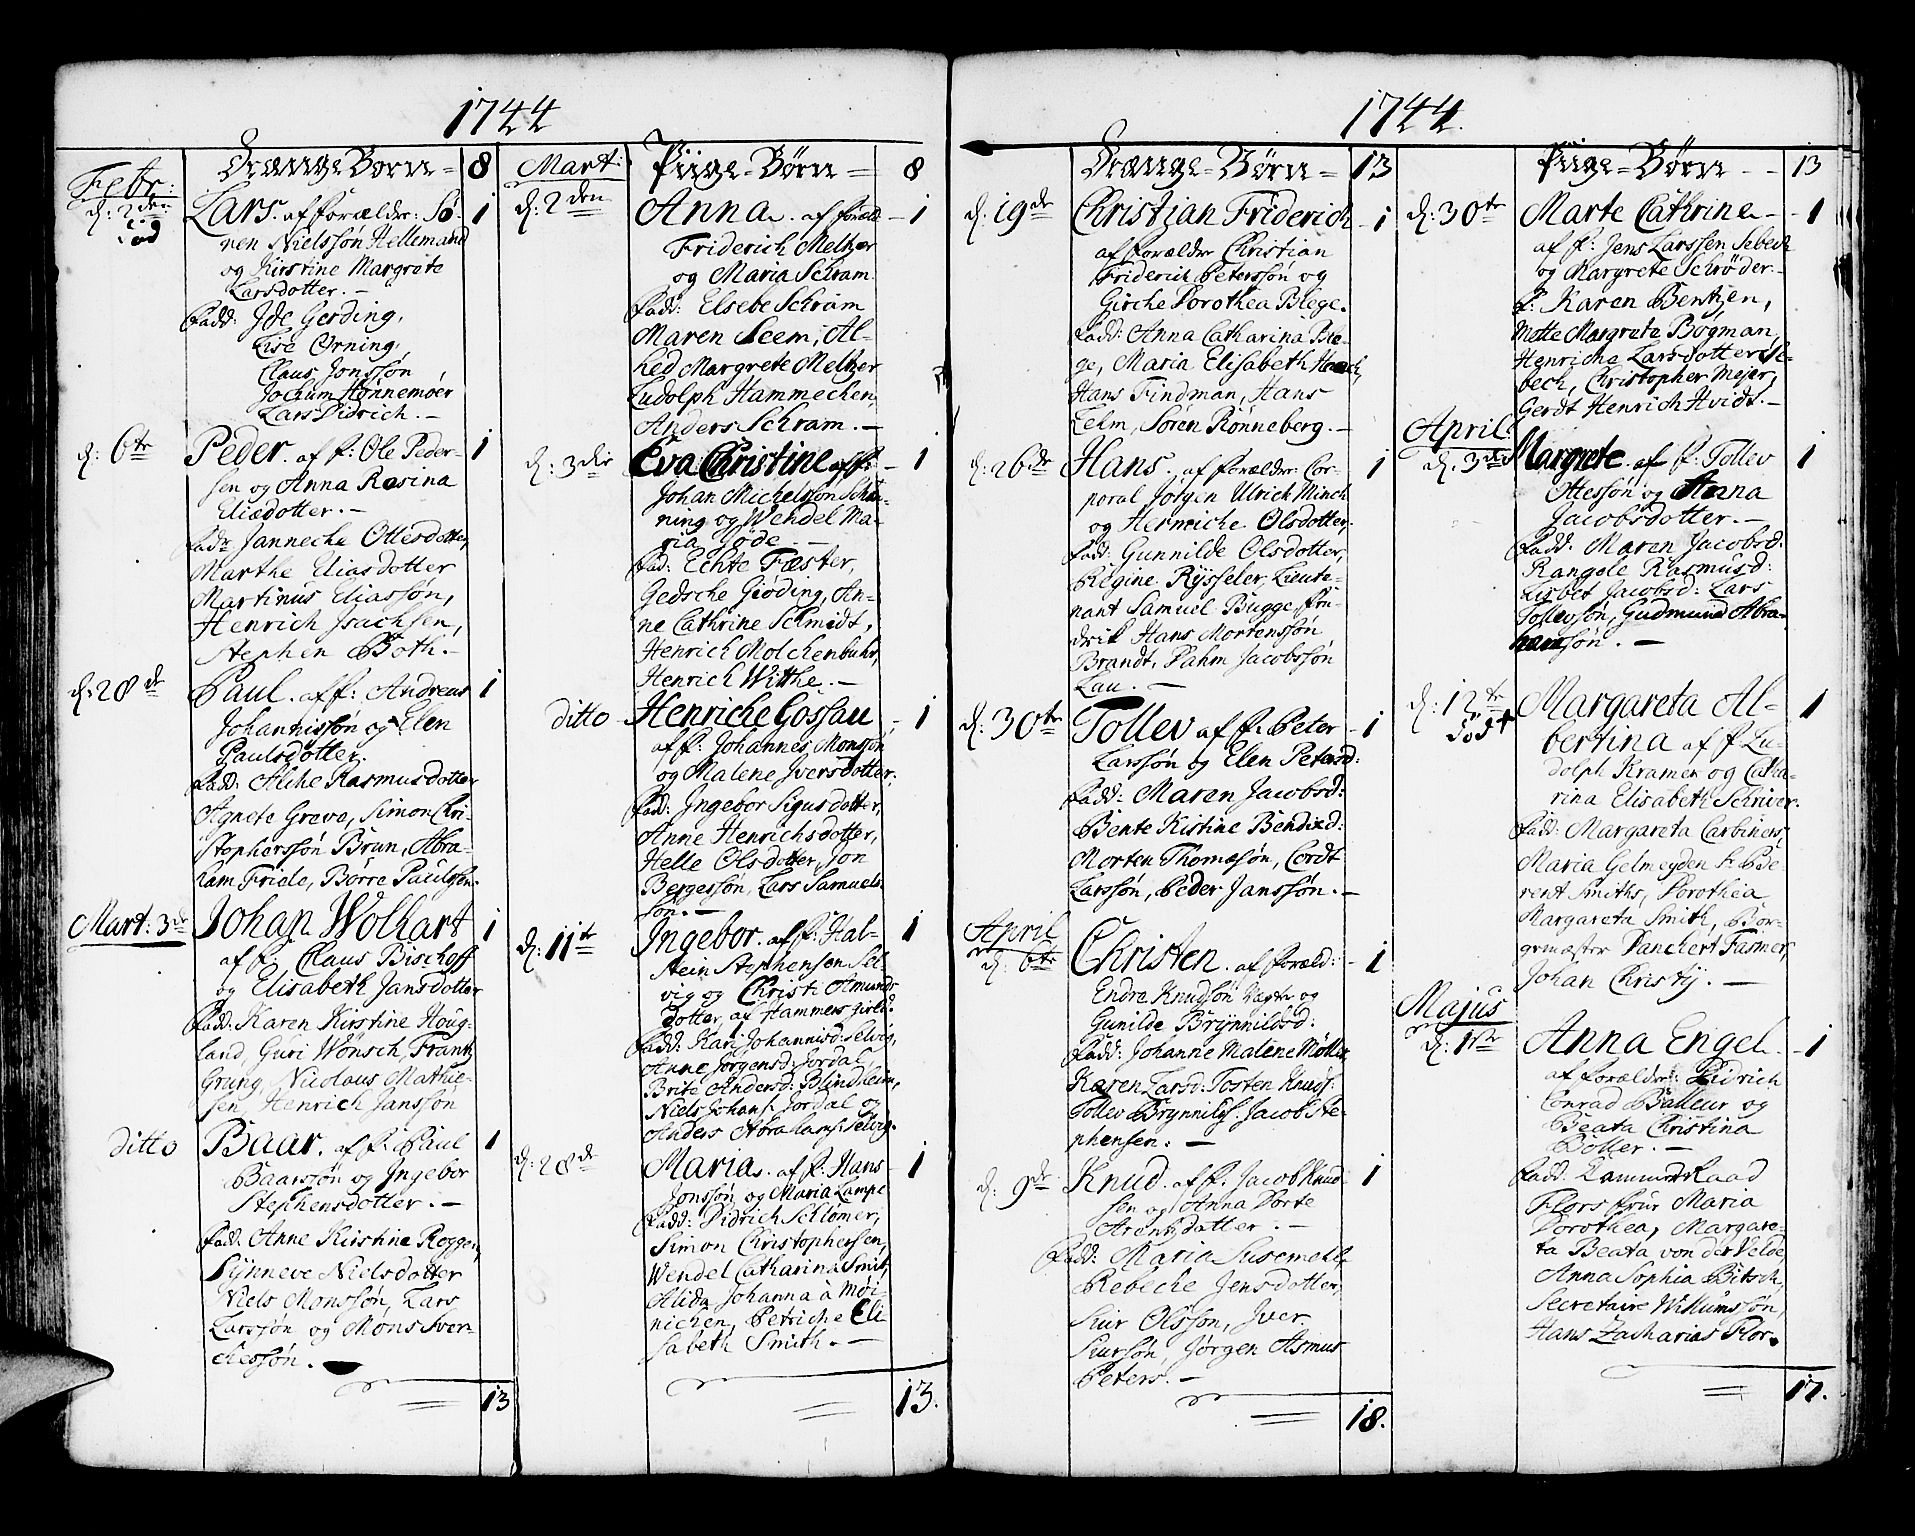 1744
Drænge Børn = 8
Febr:
d: 2den
Lars. af forælder: Sø- 1
ren Nielssøn Hellemand
og Kirstine Margrete
Larsdotter. -
fadd: Jde Gerding,
Lise Ørning,
Claus Jonssøn
Jochum Hønnemøer
Lars Didrich. -
d: 6te
Peder. af f: Ole Peder- 1
sen og Anna Rosina
Eliædotter. -
fadr Janneche Ottesdotter,
Marthe Eliasdotter
Martinus Eliassøn,
Henrich Jsachsen,
Stephen Both. -
d: 28de
Paul. af f: Andreas 1
Johannissøn og Elen
Paulsdotter.
fadd: Alche Rasmusdotter
Agnete Greve, Simon Chri-
stopherssøn Brun, Abra-
ham Friele, Børre Paulssøn.
Mart: 3de
Johan Wolkart 1
af f: Claus Bischoff
og Elisabeth Jansdotter
fadd: Karen Kirstine Houg-
land, Guri Wønsch, Frantz
Grung, Nicolaus Mathie-
sen, Henrich Janssøn
ditto
Baar. af f: Paul 1
Baarssøn og Jngebor
Stephensdotter. -
fadd: Anne Kirstine Rogge,
Synneve Nielsdotter
Niels Monssøn, Lars
Larssøn og Mons Sver-
chessøn.
13
Mart: Piige-Børn = 8
d: 2den
Anna. af foræld: - 1
Friderich Meltzer
og Maria Schram
fadd: Elsebe Schram
Maren Seem, Al-
hed Margrete Meltzer
Ludolph Hammechen,
Anders Schram. -
d: 3die
Eva Christine af f: - 1
Johan Michelssøn Schøn-
ning og Wendel Ma-
ria Jøde -
fad: Echte Fæster,
Gedsche Giøding, An-
ne Cathrine Schmidt,
Henrich Molchenbuhr,
Henrich Witthe. -
ditto
Henriche Gossau - 1
af f: Johannes Monssøn
og Malene Jversdotter.
fadd: Jngebor Sigursdotter,
Anne Henrichsdotter,
Helle Olsdotter, Jon
Bergessøn, Lars Samuels
søn. -
d: 11te
Jngebor. af f: Hal- 1
stein Stephensen Sel-
vig og Christi Amunds
dotter, af Hammers Gield.
fadd: Kari Johannisd: Selvig,
Anne Jørgensd: Jordal,
Brite Andersd: Blindheim,
Niels Johans. Jordal og
Anders Abrahams. Selvig.
d: 28de
Maria. af f: Hans - 1
Jonssøn og Maria Lampe
fadd: Didrich Schlømer,
Simon Christophersen,
Wendel Catharina Smit,
Alida Johanna à Møi-
nichen, Petriche Eli
sabeth Smith. -
13.
1744.
Drænge-Børn = 13
d: 19de
Christjan Friderich - 1
af forælder Christian
Friderich Peterssøn og
Girche Dorothea Blege.
fadd: Anna Catharina Ble-
ge, Maria Elisabeth Haach,
Hans Findman, Hans
Lelm, Søren Rønneberg. -
d: 26de
Hans. af forælder: Cor- 1
poral Jørgen Ulrich Minch
og Hermiche Olsdotter,
fadd: Gunnilde Olsdotter,
Regine Rysseler, Lieute-
nant Samuel Bugge, fen-
drik Hans Mortenssøn
Brandt, Dahm Jacobssøn
Lau. -
d: 30te
Tollev af f: Peter - 1
Larssøn og Elen Petersd:
fadd: Maren Jacobsd:
Bente Kistine Bendixd:
Morten Thomæsøn, Cordt
Larssøn, Peder Janssøn. -
April
d: 6te
Christen. af foræld: - 1
Endre Knudsøn Vagter og
Gunilde Brynnildsd:
fadd: Johanne Malene Møller
Karen Larsd: Tosten Knuds:
Tollev Brynnilds: Jacob Ste-
phensen. -
d: 9de
Knud. af f: Jacob Knud- 1
sen og Anna Dorte
Arentsdatter. -
fadd: Maria Susemehl,
Rebeche Jensdotter,
Siur Olssøn, Jver
Siursøn, Jørgen Asmus
Peters. -
18.
Piige-Børn - - 13
d: 30te
Marte Cathrine - - 1
af f: Jens Larssen Sebech
og Margrete Schrøder -
f: Karen Bentzen,
Mette Margrete Bogman,
Henriche Larsdotter Se-
bech, Christopher Mejer,
Gerdt Henrich Hvidt. -
April:
d: 3die
Margrete. af f: Tollev 1
Ottessøn og Anna
Jacobsdotter. -
fadd: Maren Jacobsd:
Rangele Rasmusd:
Lisbet Jacobsd: Lars
Tollevsøn, Gudmund Abra-
hamsøn. -
d: 12te
Margareta Al- 1
bertina af f: Lu-
dolph Kramer og Catha-
rina Elisabeth Schriver.
fadd: Margareta Carbiners,
Maria Gelmeyden S: Be-
rent Smiths, Dorothea
Margareta Smith, Bor-
gemæster Danchert Fasmer,
Johan Christij. -
Majus
d: 1ste
Anna Engel. - 1
af forælder: Didrich
Conrad Balleur og
Beata Christina
Bøller. -
fadd: Kammer Raad
Flors frue Maria
Dorothea, Margare-
ta Beata von der Velde,
Anna Sophia Bitsch,
Secretaire Willumssøn,
Hans Zacharias Flor.
17.